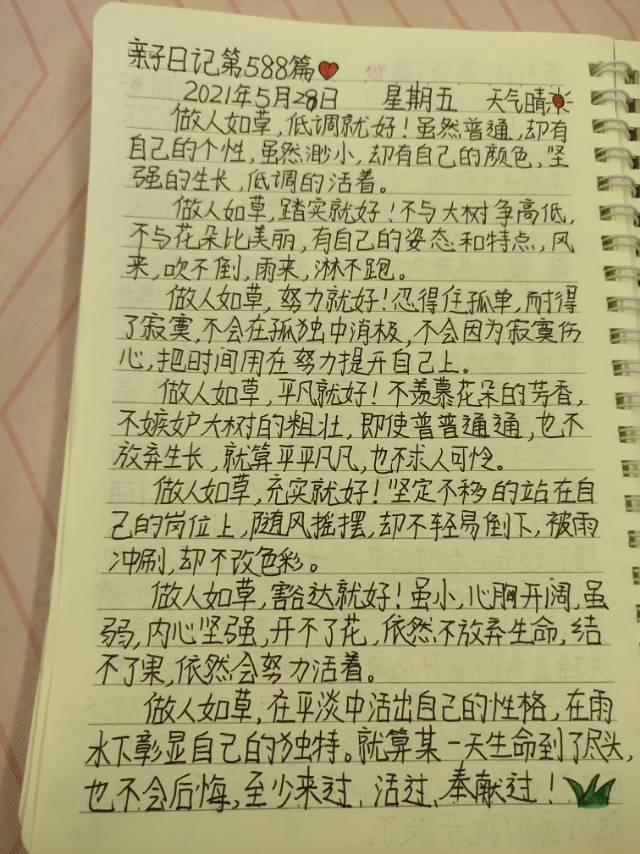 亲子日记第588篇
2021年5月28日 星期五 天气晴
做人如草,低调就好!虽然普通,却有
自己的个性,虽然渺小,却有自己的颜色,坚
强的生长,低调的活着。
做人如草,踏实就好!不与大树争高低,
不与花朵比美丽,有自己的姿态和特点,风
来,吹不倒,雨来,淋不跑。
做人如草,努力就好!忍得住孤单,耐得
了寂寞,不会在孤独中消极,不会因为寂寞伤
心,把时间用在努力提升自己上。
做人如草,平凡就好!不羡慕花朵的芳香,
不嫉妒大树的粗壮,即使普普通通,也不
放弃生长,就算平平凡凡,也不求人可怜。
做人如草,充实就好!坚定不移的站在自
己的岗位上,随风摇摆,却不轻易倒下,被雨
冲刷,却不改色彩。
做人如草,豁达就好!虽小,心胸开阔,虽
弱,内心坚强,开不了花,依然不放弃生命,结
不了果,依然会努力活着。
做人如草,在平淡中活出自己的性格,在雨
水下彰显自己的独特。就算某一天生命到了尽头,
也不会后悔,至少来过、活过、奉献过!